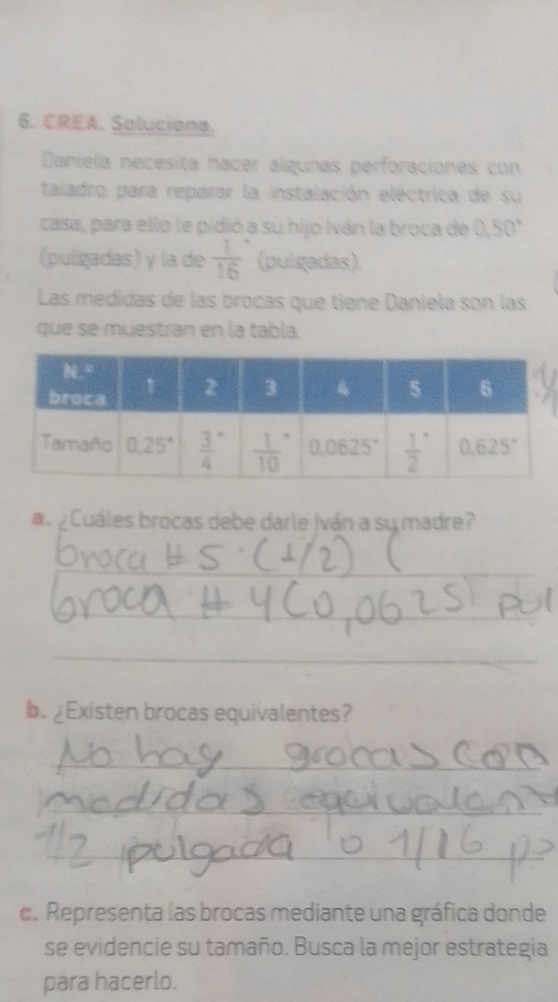 6. CREA. Soluciona.
Daniela necesita hacer algunas perforaciones con
taladro para reparar la instalación eléctrica de su
casa, para ello le pidió a su hijo Iván la broca de 0,50"
(pulgadas) y la de 1/16" (pulgadas).
Las medidas de las brocas que tiene Daniela son las
que se muestran en la tabla.
N.° broca 1 2 3 4 5 6
Tamaño 0,25" 3/4" 1/10" 0,0625" 1/2" 0,625"
a. ¿Cuáles brocas debe darle Iván a su madre?
broca # 5 · (1/2) (
broca # 4 (0,0625 pul
b. ¿Existen brocas equivalentes?
No hay grocas con
medidas
1/2 pulgada o 1/16
c. Representa las brocas mediante una gráfica donde
se evidencie su tamaño. Busca la mejor estrategia
para hacerlo.